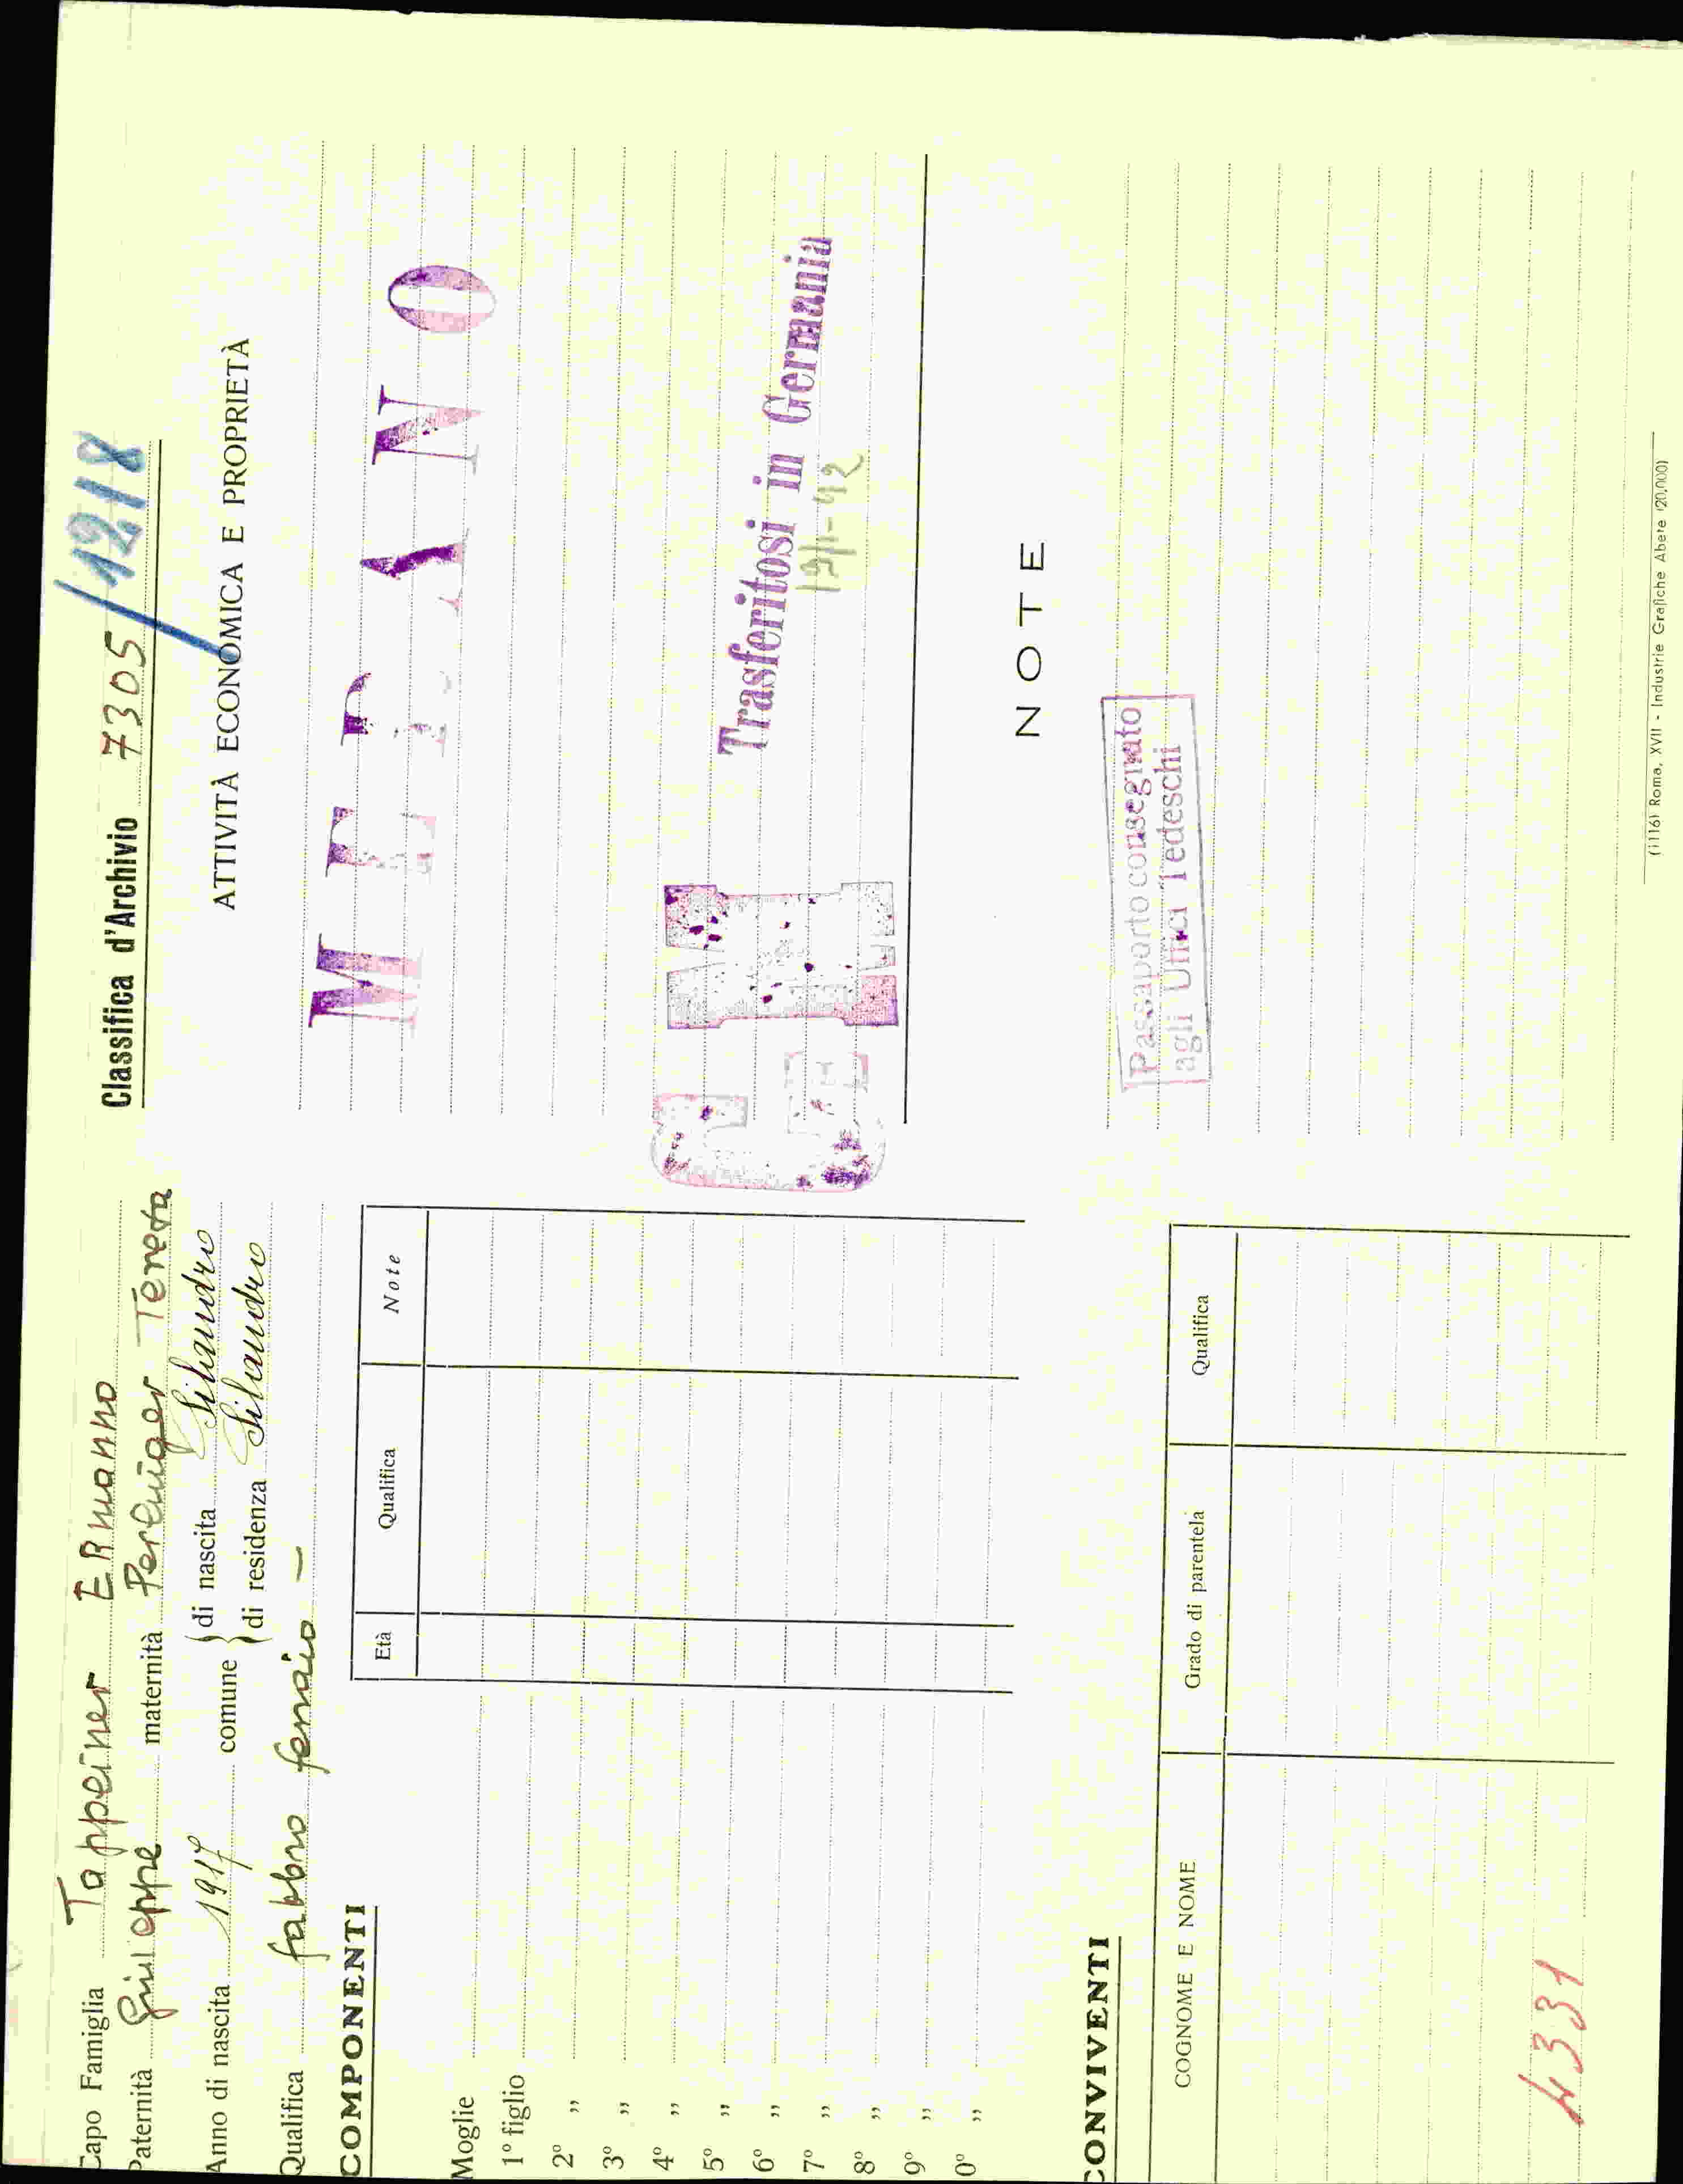 Capo Famiglia Tappeiner ERmanno
Paternità Giuseppe maternità Teresa
Anno di nascita 1917 comune { di nascita Silandro
{ di residenza Silandro
Qualifica fabbro ferraio –
COMPONENTI
Età Qualifica Note
Moglie
1º figlio
2º ,,
3º ,,
4º ,,
5º ,,
6º ,,
7º ,,
8º ,,
9º ,,
0º ,,
CONVIVENTI
COGNOME E NOME Grado di parentela Qualifica
4331
Classifica d'Archivio 7305/1218
ATTIVITÀ ECONOMICA E PROPRIETÀ
MELANO
Trasferitosi in Germania
NOTE
Passaporto consegnato
agli Uffici Tedeschi
(1116) Roma, XVII - Industrie Grafiche Abete (20.000)